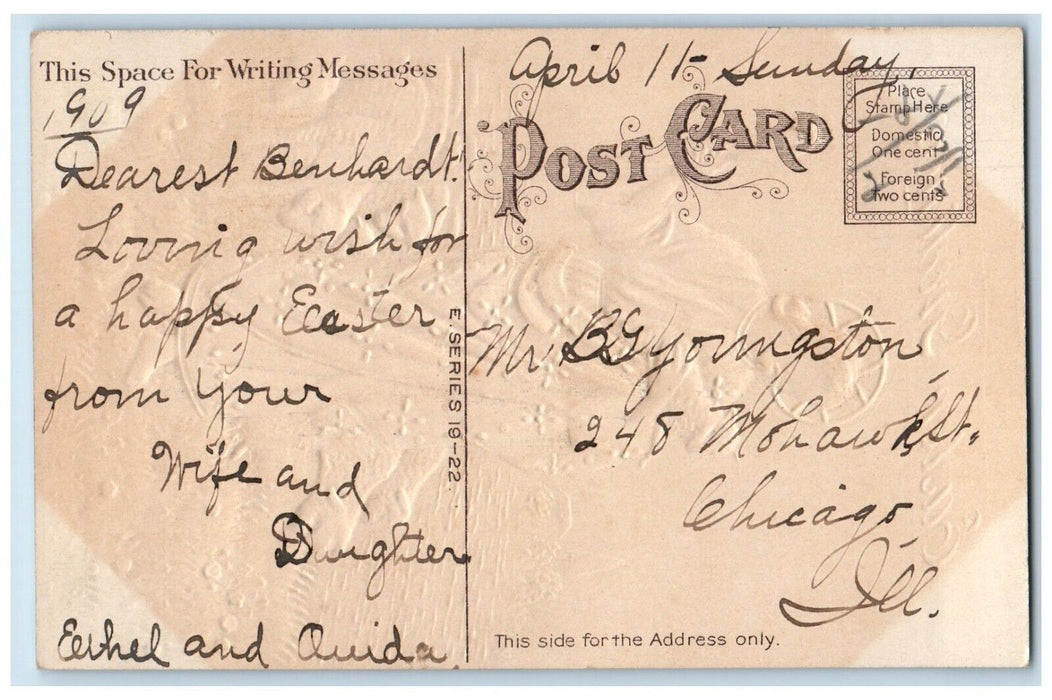 This Space For Writing Messages
1909
Dearest Benhardt!
Loving wish for
a happy Easter
from your
Wife and
Dwighter
Eethel and Ouida
E. SERIES 19-22.
April 11- Sunday,
POST CARD
Place
Stamp Here
Domestic
One cent
Foreign
Two cents
Mr. B G Youngston,
248 Mohawk St.
Chicago,
Ill.
This side for the Address only.